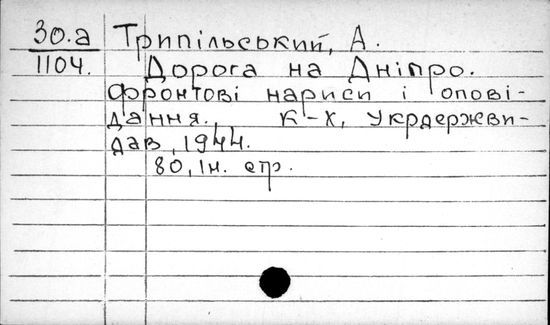 30.а Трипільський, А.
1104. Дорога на Дніпро.
фронтові нариси і опові-
дання. К-Х, Укрдержви-
дав, 1944.
80, 1н. стр.